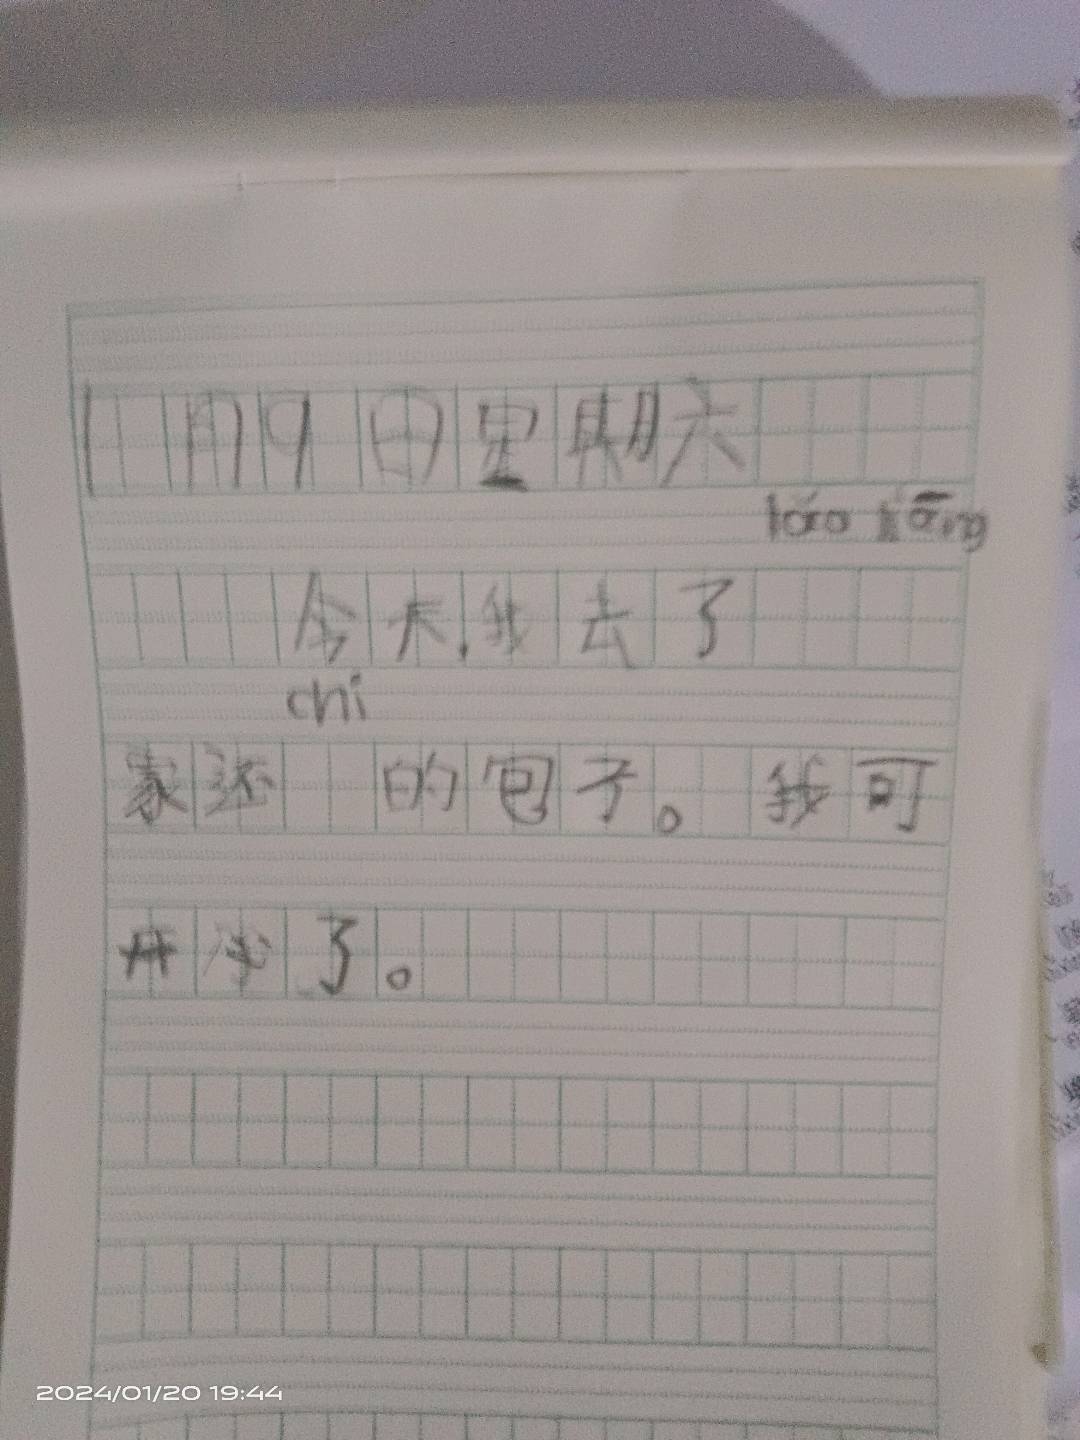 1月9日星期六
lǎo jiāng
今天,我去了
chi
家还 的包子。我可
开心了。
2024/01/20 19:44